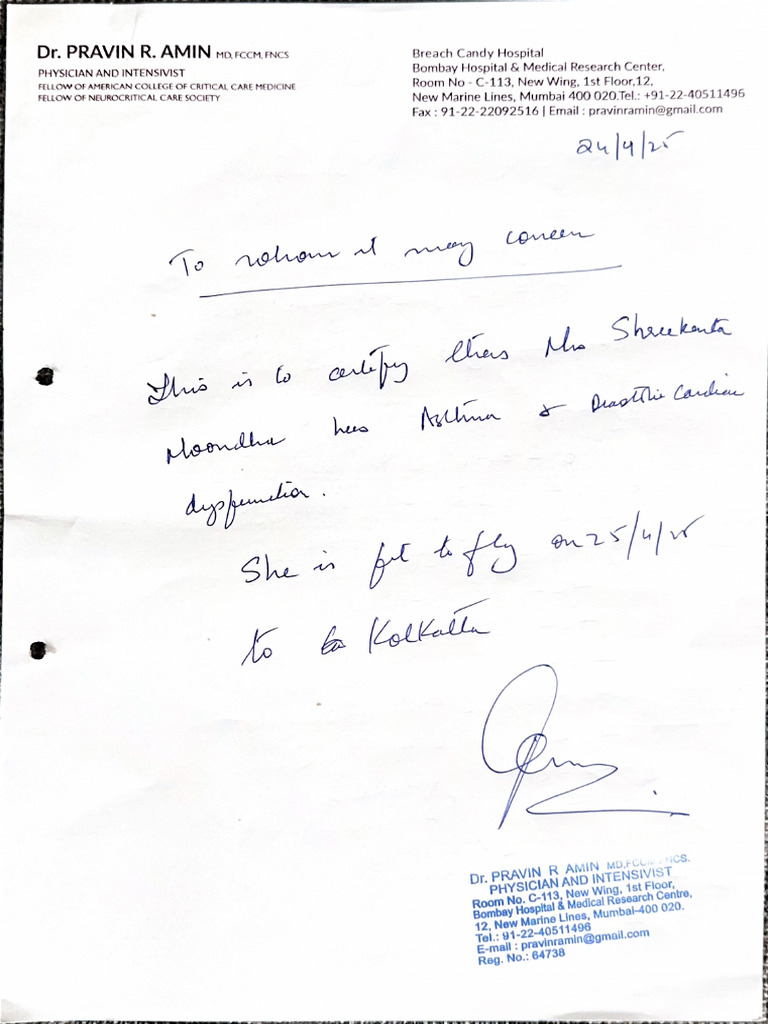 Dr. PRAVIN R. AMIN MD, FCCM, FNCS
PHYSICIAN AND INTENSIVIST
FELLOW OF AMERICAN COLLEGE OF CRITICAL CARE MEDICINE
FELLOW OF NEUROCRITICAL CARE SOCIETY
Breach Candy Hospital
Bombay Hospital & Medical Research Center,
Room No - C-113, New Wing, 1st Floor,12,
New Marine Lines, Mumbai 400 020.Tel.: +91-22-40511496
Fax : 91-22-22092516 | Email : pravinramin@gmail.com
24/4/25
To whom it may concern
This is to certify that Mrs Shreekanta
Moondhra has Asthma & Diastolic Cardiac
dysfunction.
She is fit to fly on 25/4/25
to Kolkatta
Dr. PRAVIN R AMIN MD,FCCM,FNCS.
PHYSICIAN AND INTENSIVIST
Room No. C-113, New Wing, 1st Floor,
Bombay Hospital & Medical Research Centre,
12, New Marine Lines, Mumbai-400 020.
Tel.: 91-22-40511496
E-mail : pravinramin@gmail.com
Reg. No.: 64738